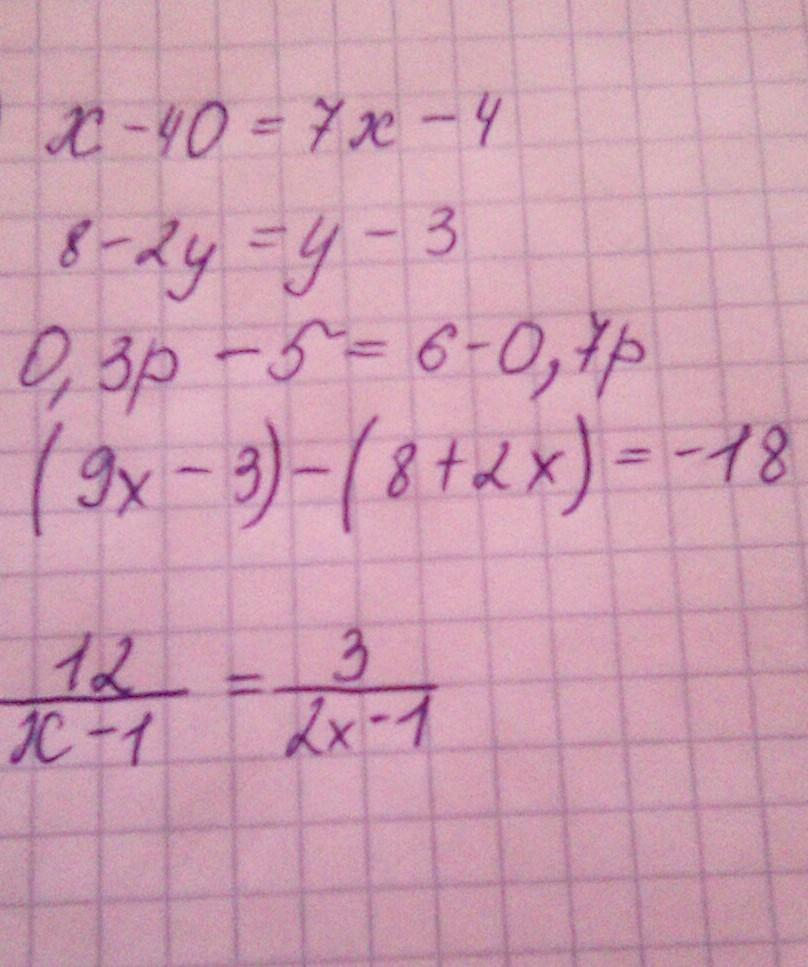 x - 40 = 7x - 4
8 - 2y = y - 3
0,3p - 5 = 6 - 0,7p
(9x - 3) - (8 + 2x) = -18
12/(x - 1) = 3/(2x - 1)